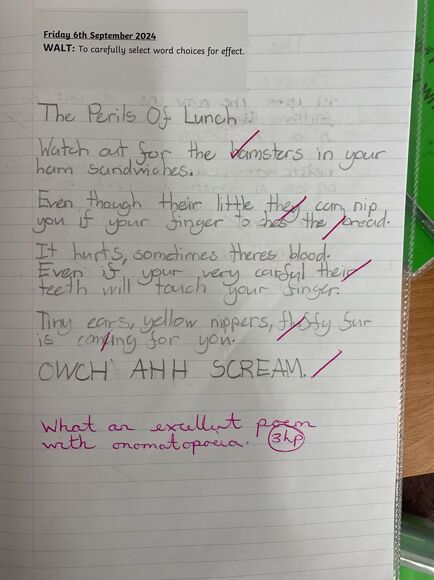 Friday 6th September 2024
WALT: To carefully select word choices for effect.
The Perils Of Lunch
Watch out for the hamsters in your
ham sandwiches.
Even though their little they can nip
you if your finger toches the bread.
It hurts, sometimes theres blood.
Even if your very carful their
teeth will touch your finger.
Tiny ears, yellow nippers, fluffy fur
is coming for you.
OWCH AHH SCREAM.
What an excellent poem
with onomatopoeia. 3hp